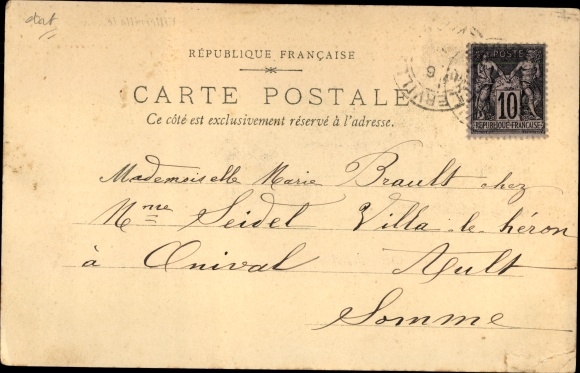 dat
RÉPUBLIQUE FRANÇAISE
CARTE POSTALE
Ce côté est exclusivement réservé à l'adresse.
POSTE
10
RÉPUBLIQUE FRANÇAISE
Mademoiselle Marie Brault chez
Mme Seidel Villa le héron
à Onival Ault
Somme